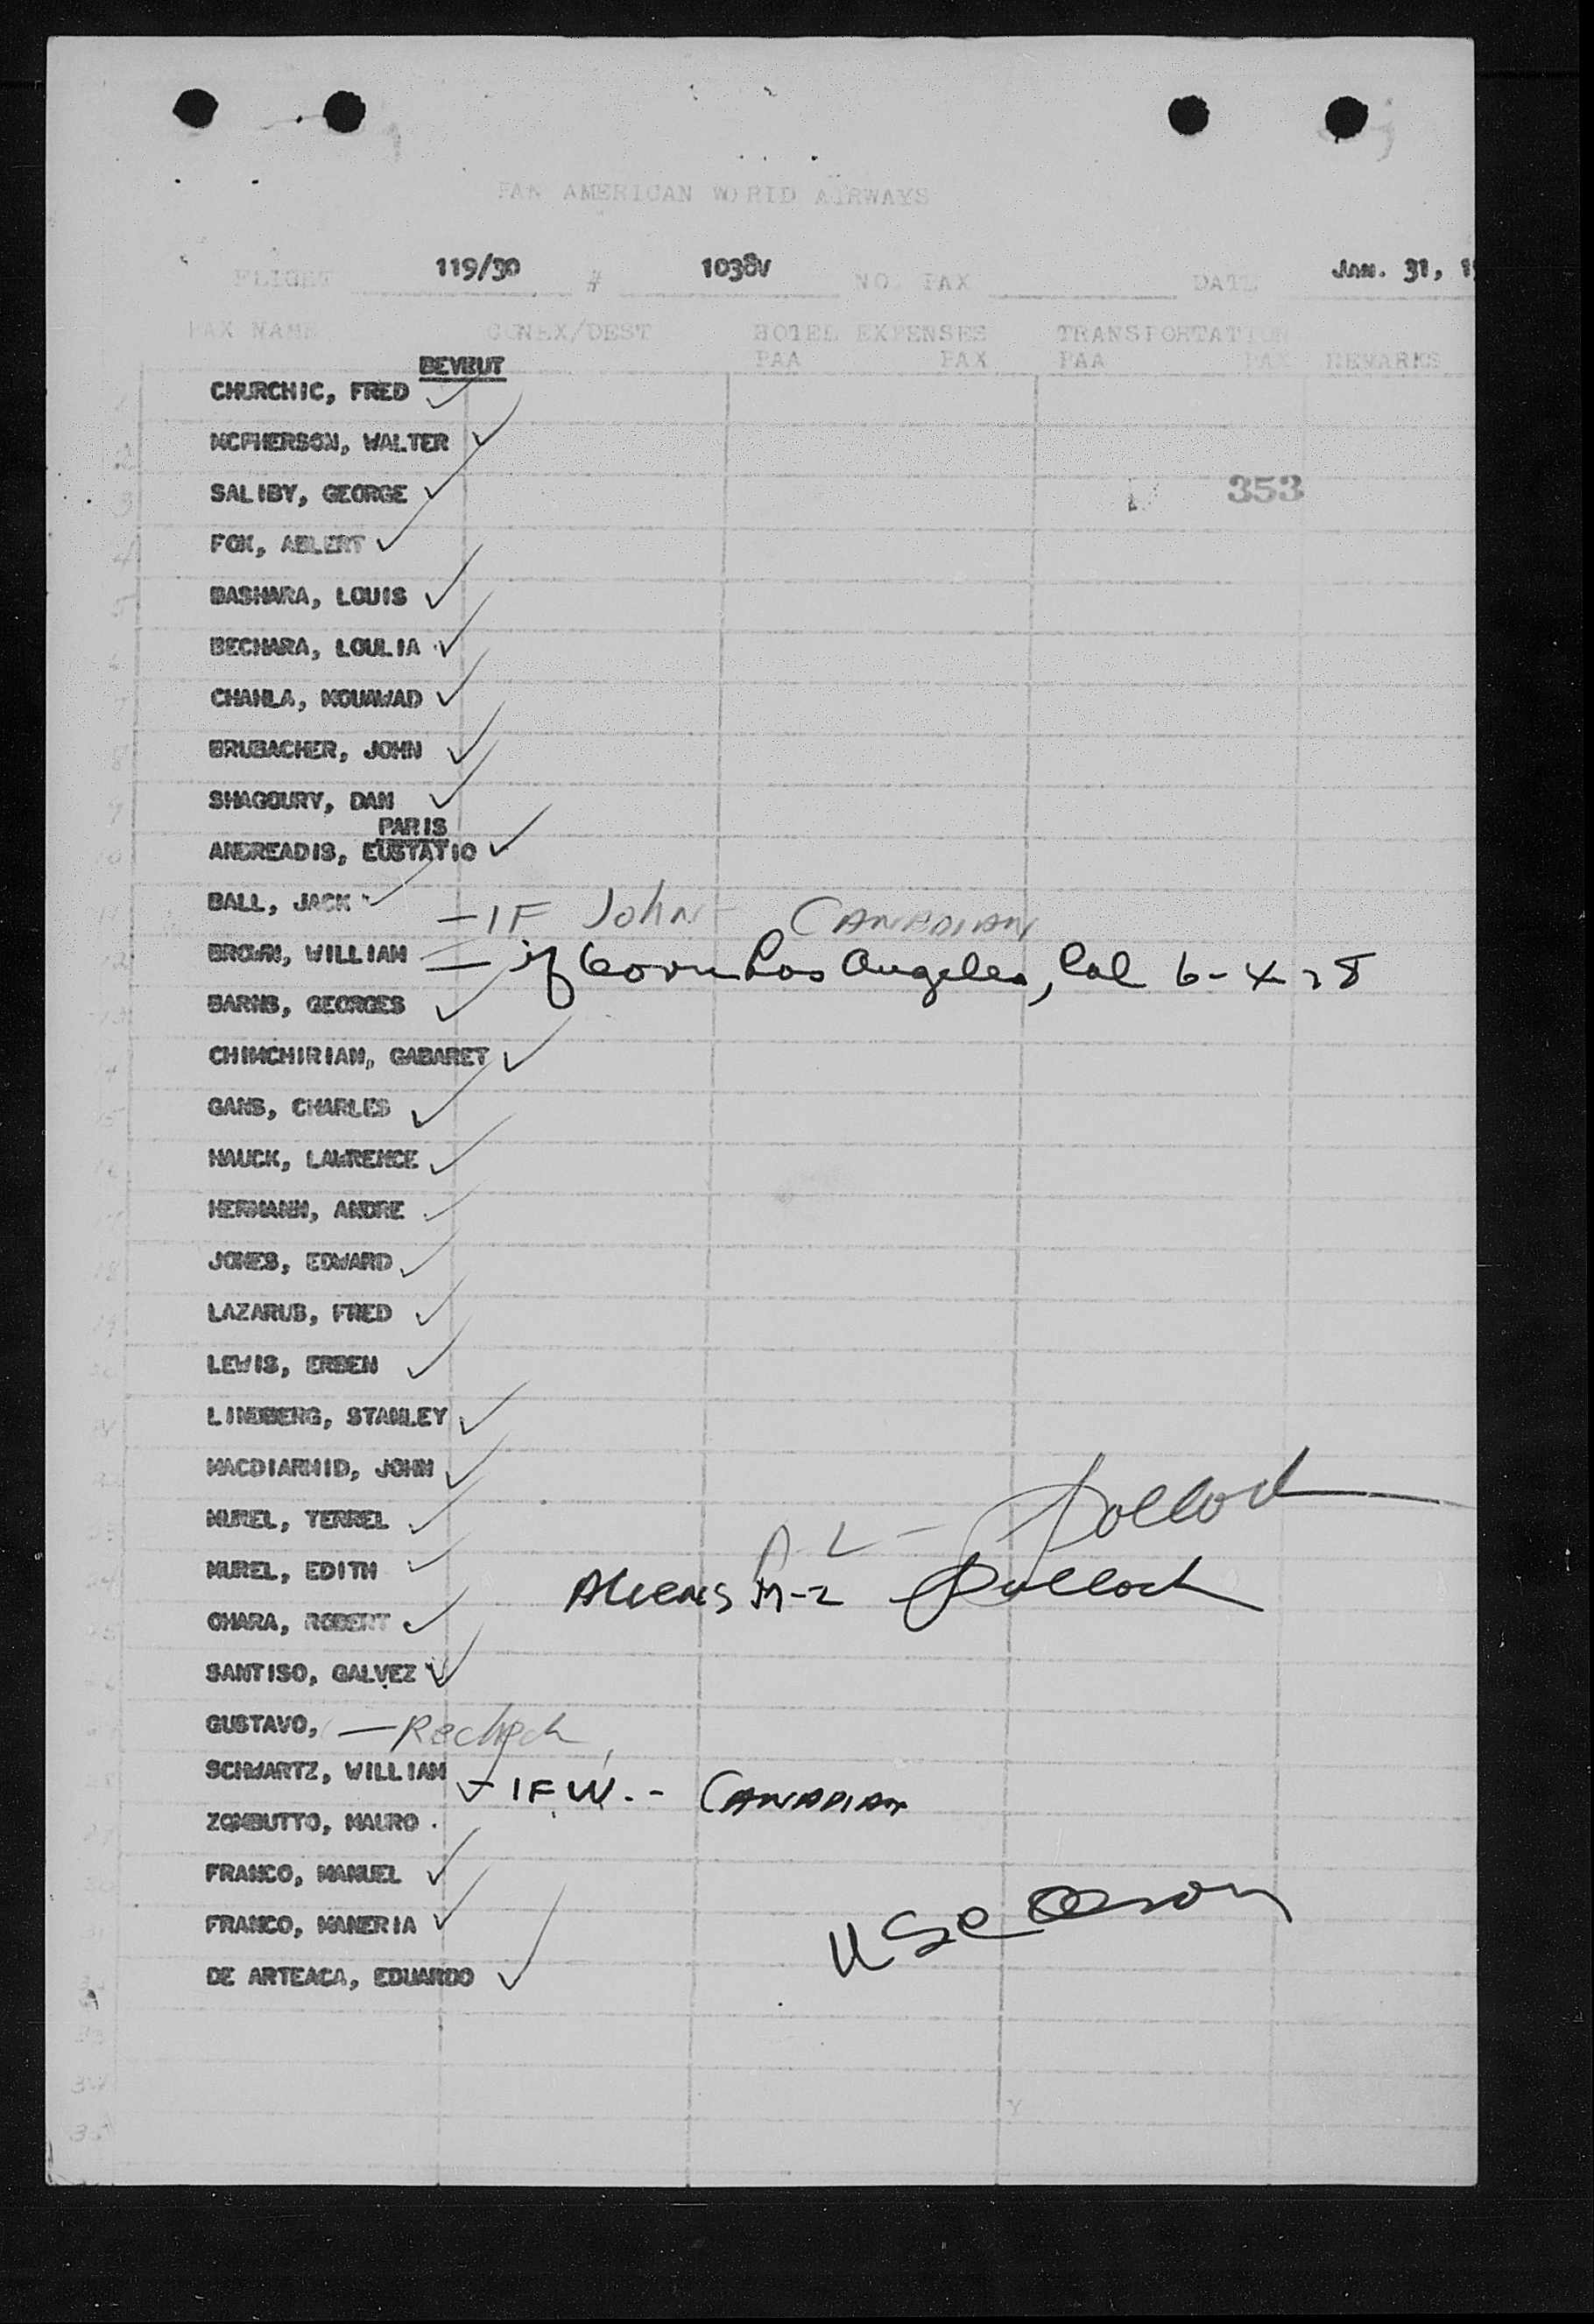 PAN AMERICAN WORLD AIRWAYS
FLIGHT 119/30 # 1038V NO. PAX DATE JAN. 31, 1
PAX NAME CONEX/DEST HOTEL EXPENSES TRANSPORTATION
PAA PAX PAA PAX REMARKS
BEYRUT
1 CHURCHIC, FRED
2 MCPHERSON, WALTER
3 SALIBY, GEORGE 353
4 FOX, ABLERT
5 BASHARA, LOUIS
6 BECHARA, LOULIA
7 CHAHLA, MOUAWAD
8 BRUBACHER, JOHN
9 SHAGOURY, DAN
PARIS
10 ANDREADIS, EUSTATIO
11 BALL, JACK - IF John - CANADIAN
12 BROWN, WILLIAM - if born Los Angeles, Cal 6-4-28
13 BARNS, GEORGES
14 CHIMCHIRIAN, GABARET
15 GANS, CHARLES
16 HAUCK, LAWRENCE
17 HERMANN, ANDRE
18 JONES, EDWARD
19 LAZARUS, FRED
20 LEWIS, ERBEN
21 LINDBERG, STANLEY
22 MACDIARMID, JOHN
23 MUREL, TERREL Pollock
24 MUREL, EDITH ALIENS Pollock
25 OHARA, ROBERT
26 SANTISO, GALVEZ
GUSTAVO, - Recheck
SCHWARTZ, WILLIAM - IF W. - CANADIAN
ZOMBUTTO, MAURO
FRANCO, MANUEL
FRANCO, MANERIA USC
DE ARTEAGA, EDUARDO
34
35